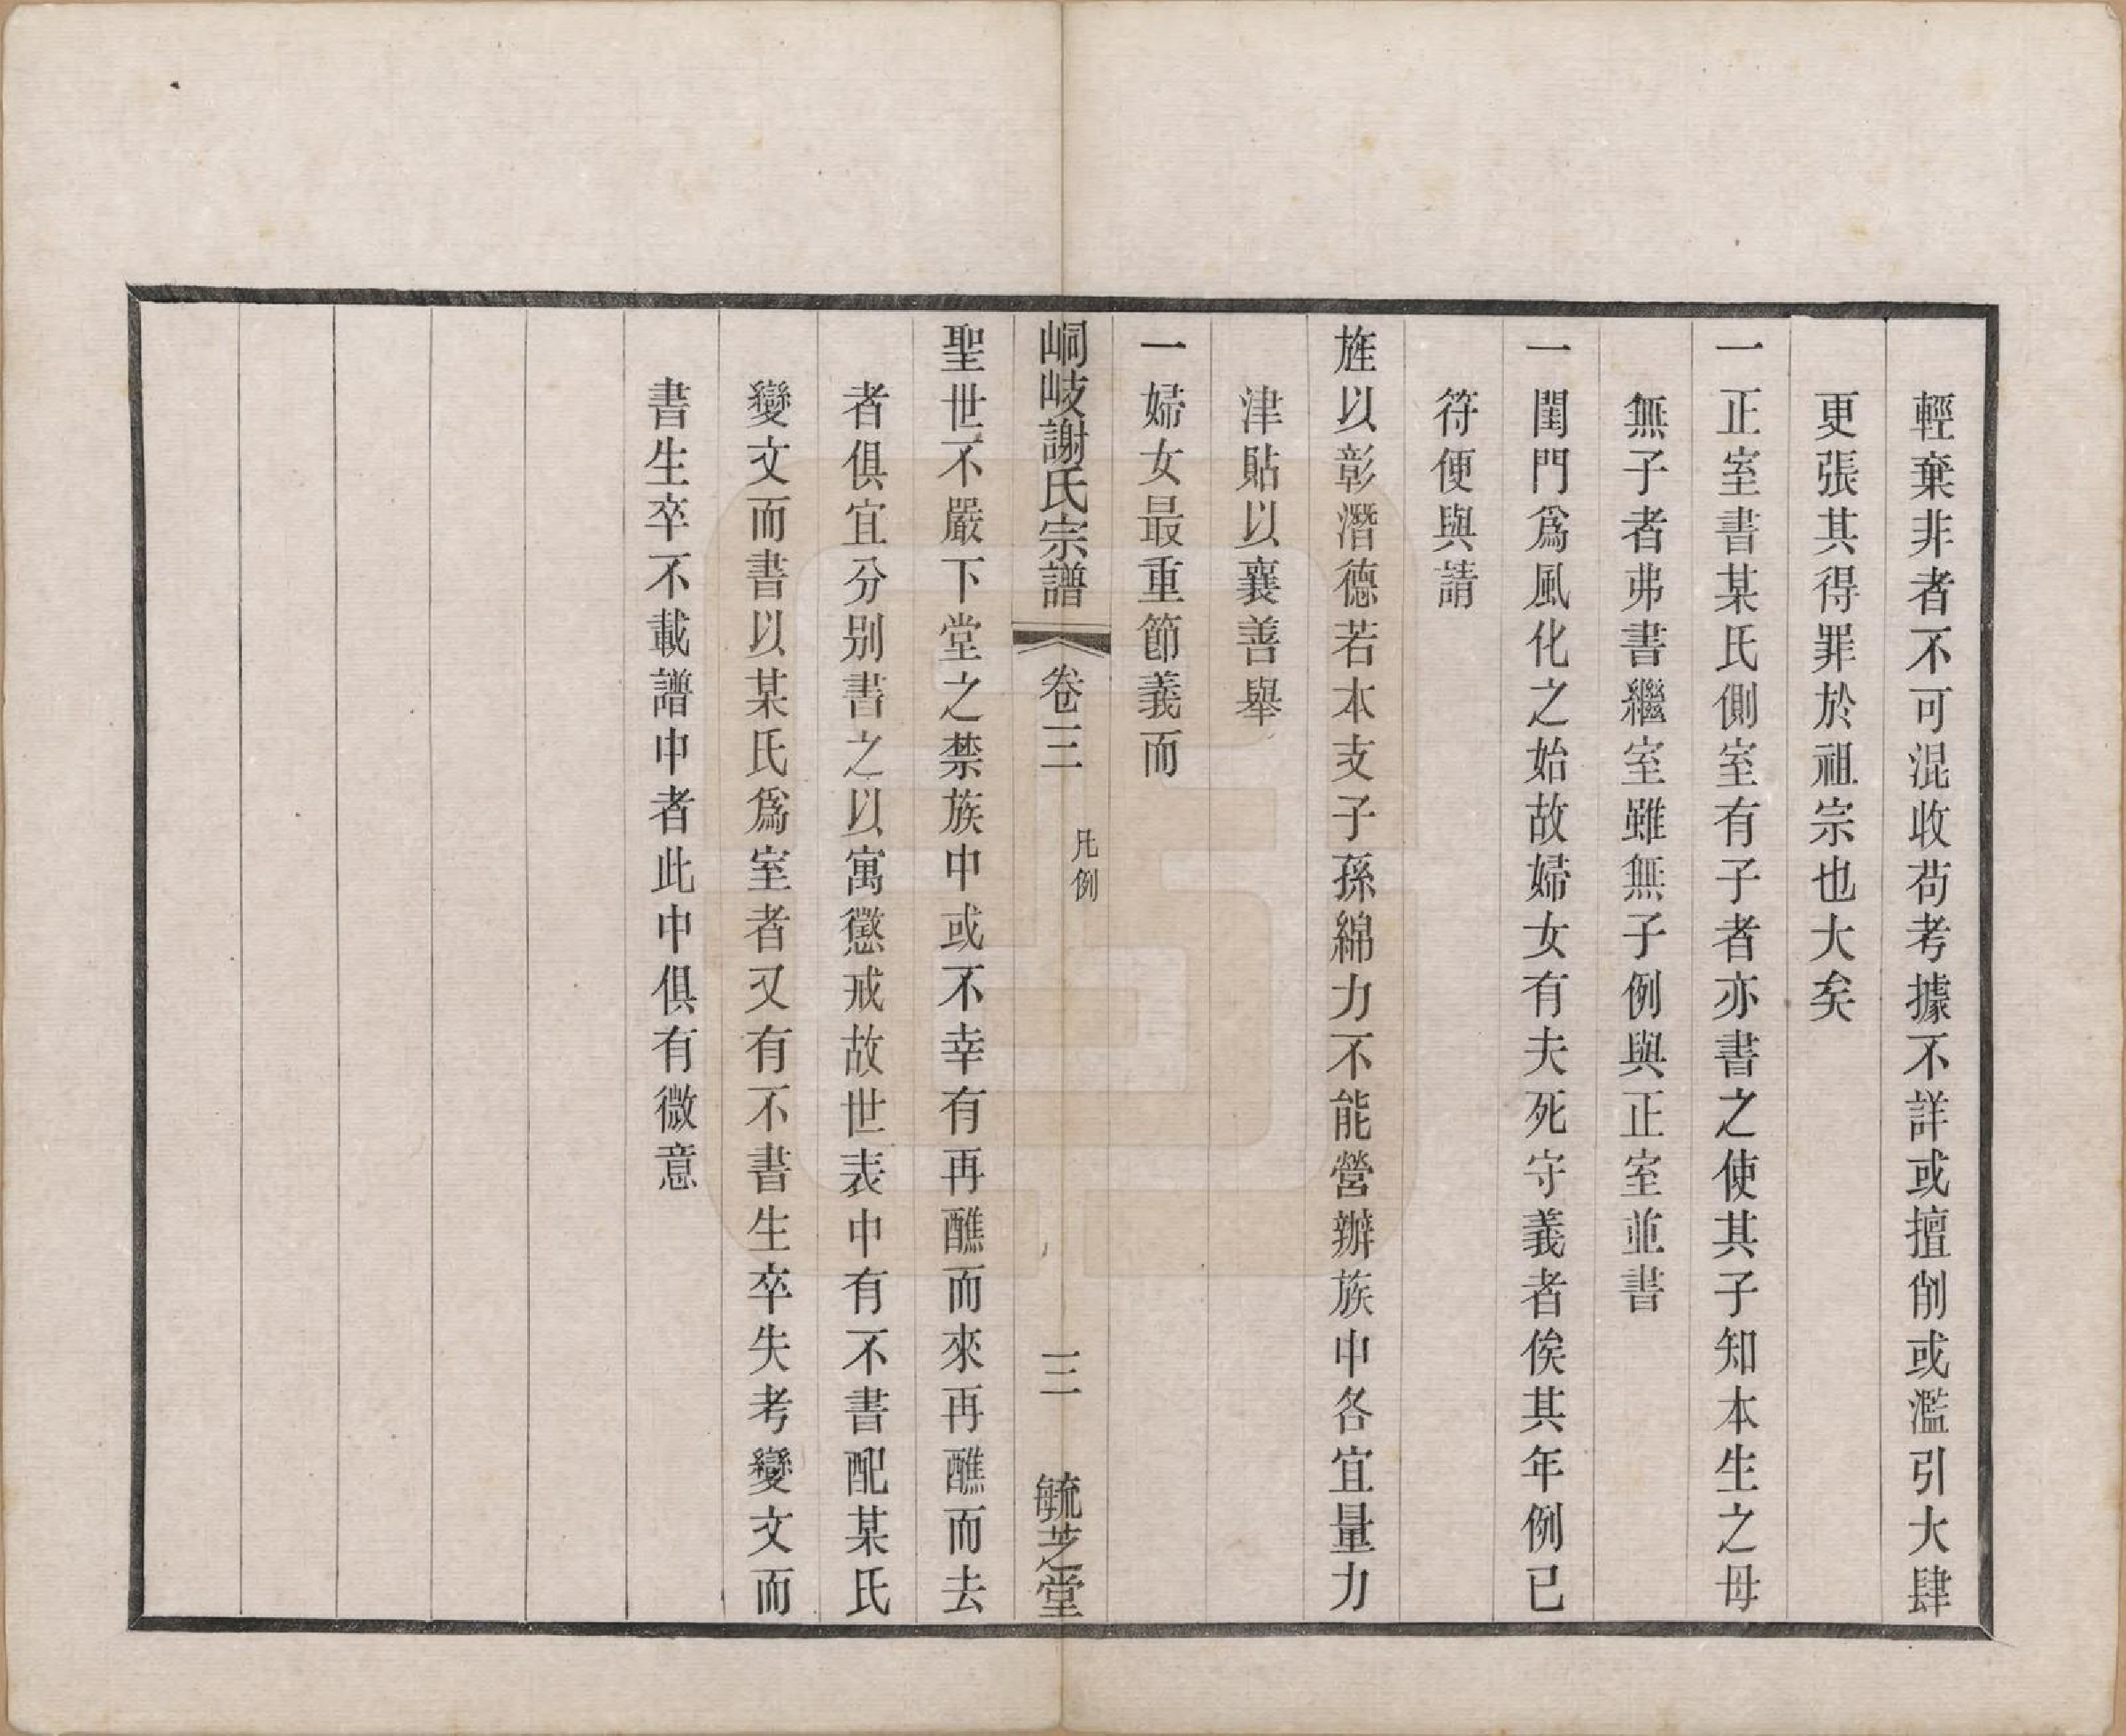 輕棄非者不可混收苟考據不詳或擅削或濫引大肆
更張其得罪於祖宗也大矣
一正室書某氏側室有子者亦書之使其子知本生之母
無子者弗書繼室雖無子例與正室並書
一閨門爲風化之始故婦女有夫死守義者俟其年例已
符便與請
旌以彰潛德若本支子孫綿力不能營辦族中各宜量力
津貼以襄善舉
一婦女最重節義而
峒岐謝氏宗譜 卷三 凡例 三 毓芝堂
聖世不嚴下堂之禁族中或不幸有再醮而來再醮而去
者俱宜分别書之以寓懲戒故世表中有不書配某氏
變文而書以某氏爲室者又有不書生卒失考變文而
書生卒不載譜中者此中俱有微意